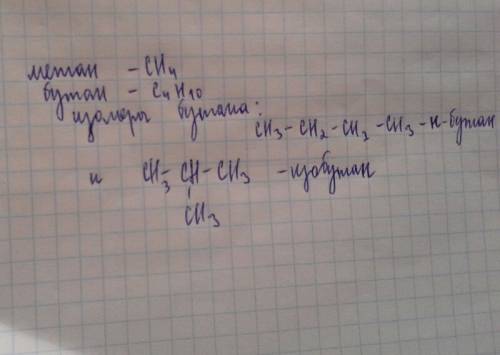 метан – CH4
бутан – C4H10
изомеры бутана:
CH3 – CH2 – CH2 – CH3 – н-бутан
и CH3 – CH – CH3 – изобутан
CH3